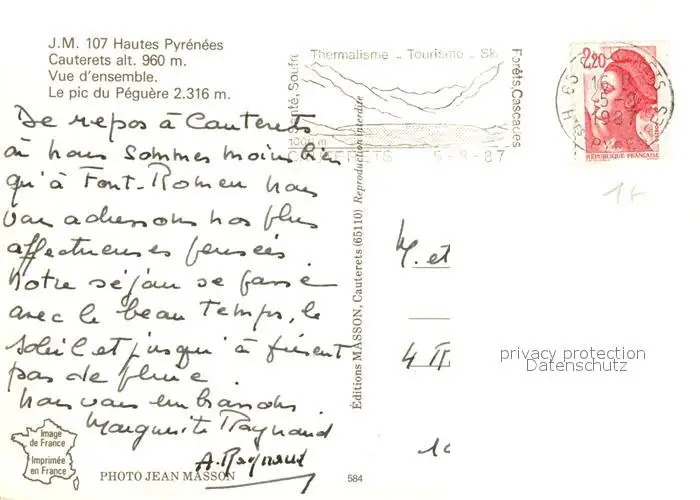 J.M. 107 Hautes Pyrénées
Cauterets alt. 960 m.
Vue d'ensemble.
Le pic du Péguère 2.316 m.
Thermalisme - Tourisme - Ski
Santé, Soufre
Forêts, Cascades
1000 m
CAUTERETS 5-8-87
65 CAUTERETS
16 H
5-8
1987
Htes PYRENEES
2,20
RÉPUBLIQUE FRANÇAISE
1F
De repos à Cauterets
où nous sommes moins bien
qu'à Font-Romeu nous
vous adressons nos plus
affectueuses pensées.
Notre séjour se passe
avec le beau temps, le
soleil et jusqu'à présent
pas de pluie.
Nous vous embrassons.
Marguerite Raynaud
A. Raynaud
Éditions MASSON, Cauterets (65110) Reproduction interdite
M. et
4
privacy protection
Datenschutz
Image
de France
Imprimée
en France
PHOTO JEAN MASSON
584